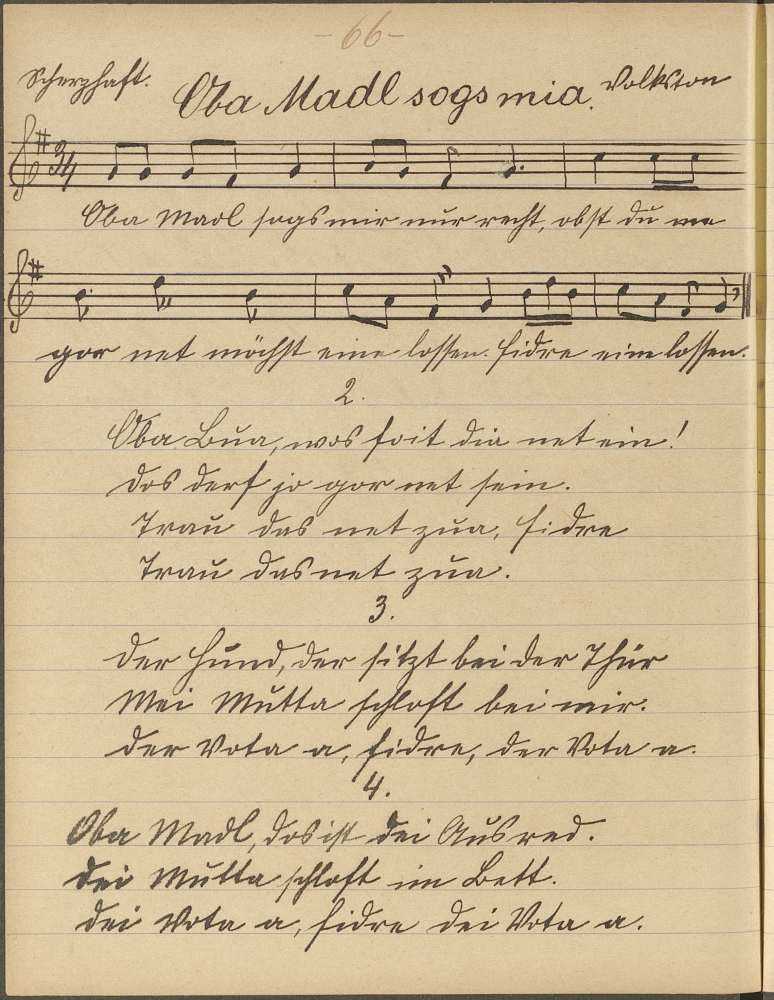 - 66 -
Scherzhaft. Oba Madl sogs mia. Volkston
3/4
Oba Madl sogs mir nur recht, obst du me
gor net möchst eine lossen. fidre eine lossen.
2.
Oba Bua, wos foit dia net ein!
Dos derf jo gor net sein.
Trau das net zua, fidre
Trau das net zua.
3.
Der Hund, der sitzt bei der Thür
Mei Mutta schloft bei mir.
Der Vota a, fidre, der Vota a.
4.
Oba Madl, dos ist dei Ausred.
Dei Mutta schloft im Bett.
Dei Vota a, fidre dei Vota a.